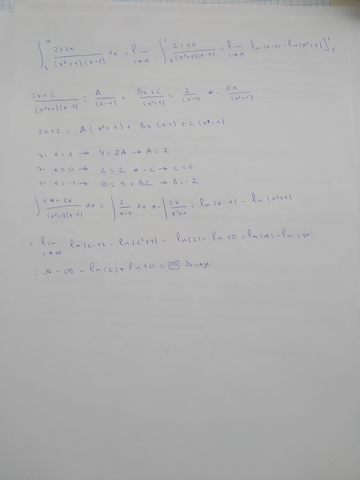 ∫₃^∞ (2+2x)/((x²+1)(x-1)) dx = lim ∫₃^c (2+2x)/((x²+1)(x-1)) = lim ln(x-1) - ln(x²+1)]₃^c
(2x+2)/((x²+1)(x-1)) = A/(x-1) + (Bx+C)/(x²+1) = 2/(x-1) + -2x/(x²+1)
2x+2 = A(x²+1) + Bx(x-1) + C(x-1)
x=1 → 4=2A → A=2
x=0 → 2=2-C → C=0
x=-1 → 0=4+2B → B=-2
∫ (2+2x)/((x²+1)(x-1)) dx = ∫ 2/(x-1) dx + -∫ 2x/(x²+1) = ln(x-1) - ln(x²+1)
= lim c→∞ ln(c-1) - ln(c²+1) - ln(2) + ln 10 = ln(∞) - ln(∞)
= ∞ - ∞ - ln(2) + ln 10 =